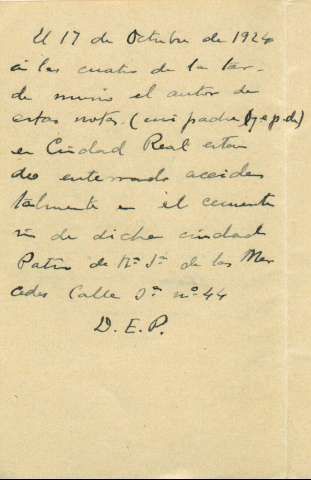 El 17 de Octubre de 1924
á las cuatro de la tar-
de murió el autor de
estas notas. (mi padre q.e.p.d.)
en Ciudad Real estan
do enterrado acciden
talmente en el cemente
rio de dicha ciudad
Patio de Nª Sª de las Mer
cedes Calle 3ª nº 44
D. E. P.